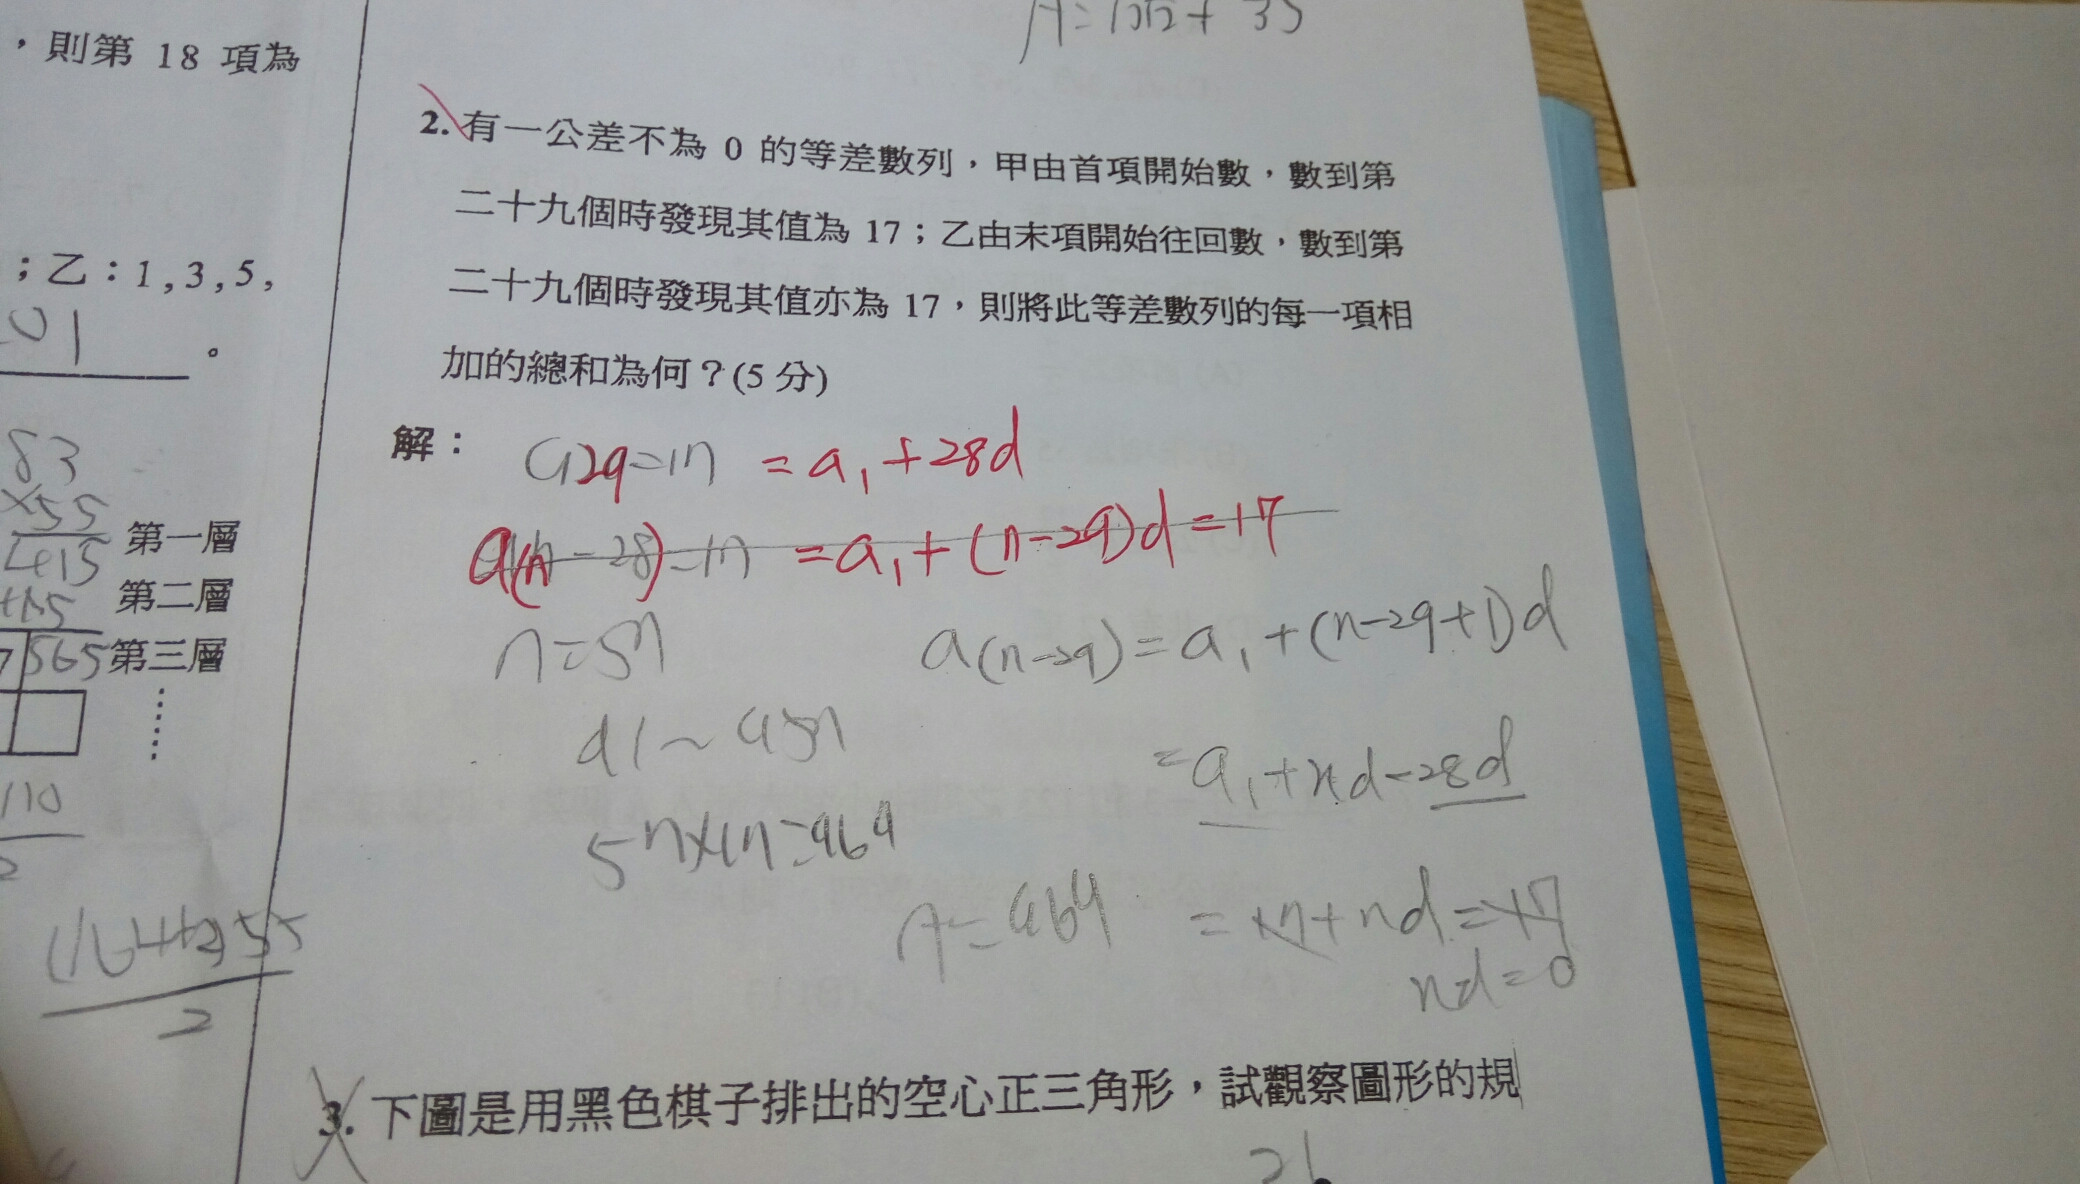 ，則第 18 項為
；乙：1 , 3 , 5 ,
01 。
83
×55
415
第一層
第二層
565 第三層
110
2
2
2. 有一公差不為 0 的等差數列，甲由首項開始數，數到第
二十九個時發現其值為 17；乙由末項開始往回數，數到第
二十九個時發現其值亦為 17，則將此等差數列的每一項相
加的總和為何？(5 分)
解：
a29=17 = a1 + 28d
a(n-28)=17 = a1 + (n-29)d = 17
n=57
a(n-29) = a1 + (n-29+1)d
a1~a57
= a1 + nd - 28d
57×17=969
A=969
= 17 + nd = 17
nd = 0
3. 下圖是用黑色棋子排出的空心正三角形，試觀察圖形的規